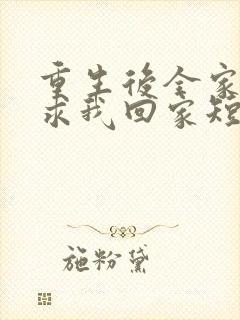 重生後全家
求我回家短
施粉黛